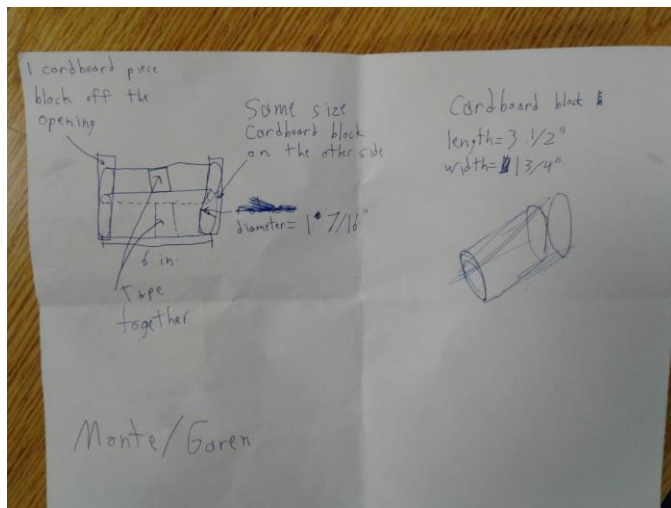 1 cardboard piece
block off the
opening
Same size
Cardboard block
on the other side
diameter = 1 7/16"
6 in.
Tape
together
Cardboard block
length = 3 1/2"
width = 1 3/4"
Monte/Goren